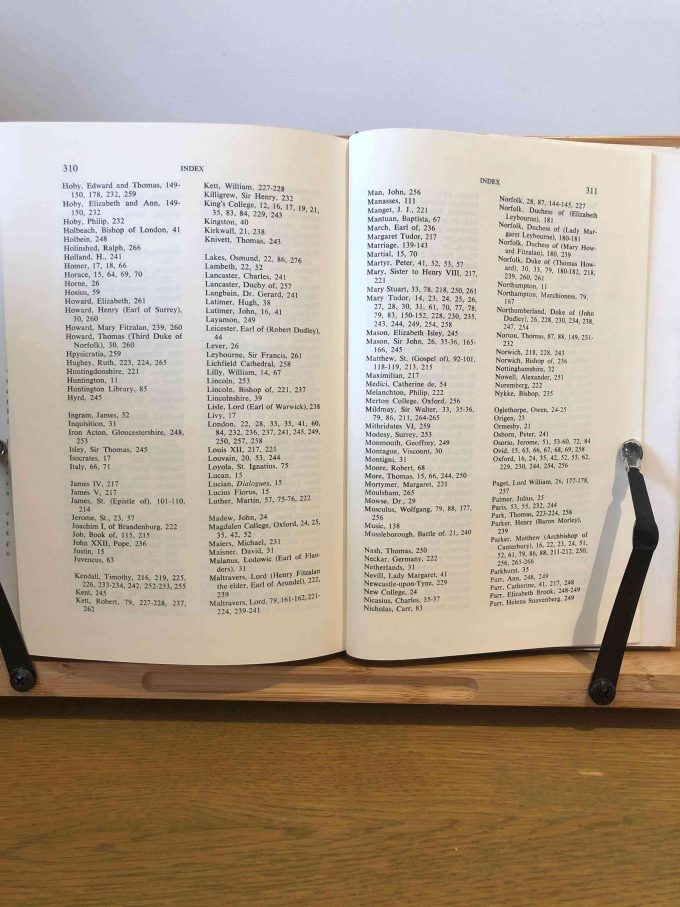 310
INDEX
Hoby, Edward and Thomas, 149-
150, 178, 232, 259
Hoby, Elizabeth and Ann, 149-
150, 232
Hoby, Philip, 232
Holbeach, Bishop of London, 41
Holbein, 248
Holinshed, Ralph, 266
Holland, H., 241
Homer, 17, 18, 66
Horace, 15, 64, 69, 70
Horne, 26
Hosius, 59
Howard, Elizabeth, 261
Howard, Henry (Earl of Surrey),
30, 260
Howard, Mary Fitzalan, 239, 260
Howard, Thomas (Third Duke of
Norfolk), 30, 260
Hpysicratia, 259
Hughey, Ruth, 223, 224, 265
Huntingdonshire, 221
Huntington, 11
Huntington Library, 85
Hyrd, 245
Ingram, James, 52
Inquisition, 31
Iron Acton, Gloucestershire, 248,
253
Isley, Sir Thomas, 245
Isocrates, 17
Italy, 66, 71
James IV, 217
James V, 217
James, St. (Epistle of), 101-110,
214
Jerome, St., 23, 57
Joachim I, of Brandenburg, 222
Job, Book of, 115, 215
John XXII, Pope, 236
Justin, 15
Juvencus, 63
Kendall, Timothy, 216, 219, 225,
226, 233-234, 242, 252-253, 255
Kent, 245
Kett, Robert, 79, 227-228, 237,
262
Kett, William, 227-228
Killigrew, Sir Henry, 232
King's College, 12, 16, 17, 19, 21,
35, 83, 84, 229, 243
Kingston, 40
Kirkwall, 21, 238
Knivett, Thomas, 243
Lakes, Osmund, 22, 86, 276
Lambeth, 22, 52
Lancaster, Charles, 241
Lancaster, Duchy of, 257
Langbain, Dr. Gerard, 241
Latimer, Hugh, 38
Latimer, John, 16, 41
Layamon, 249
Leicester, Earl of (Robert Dudley),
44
Lever, 26
Leybourne, Sir Francis, 261
Lichfield Cathedral, 258
Lilly, William, 14, 67
Lincoln, 253
Lincoln, Bishop of, 221, 237
Lincolnshire, 39
Lisle, Lord (Earl of Warwick), 238
Livy, 17
London, 22, 28, 33, 35, 41, 60,
84, 232, 236, 237, 241, 245, 249,
250, 257, 258
Louis XII, 217, 221
Louvain, 20, 53, 244
Loyola, St. Ignatius, 75
Lucan, 15
Lucian, Dialogues, 15
Lucius Florus, 15
Luther, Martin, 57, 75-76, 222
Madew, John, 24
Magdalen College, Oxford, 24, 25,
35, 42, 52
Maiers, Michael, 231
Maisner, David, 31
Malanus, Lodowic (Earl of Flan-
ders), 31
Maltravers, Lord (Henry Fitzalan
the elder, Earl of Arundel), 222,
239
Maltravers, Lord, 79, 161-162, 221-
224, 239-241
INDEX
311
Man, John, 256
Manasses, 111
Manget, J. J., 221
Mantuan, Baptista, 67
March, Earl of, 236
Margaret Tudor, 217
Marriage, 139-143
Martial, 15, 70
Martyr, Peter, 41, 52, 53, 57
Mary, Sister to Henry VIII, 217,
221
Mary Stuart, 33, 78, 218, 250, 261
Mary Tudor, 14, 23, 24, 25, 26,
27, 28, 30, 31, 61, 70, 77, 78,
79, 83, 150-152, 228, 230, 235,
243, 244, 249, 254, 258
Mason, Elizabeth Isley, 245
Mason, Sir John, 26, 35-36, 165-
166, 245
Matthew, St. (Gospel of), 92-101,
118-119, 213, 215
Maximilian, 217
Medici, Catherine de, 54
Melanchton, Philip, 222
Merton College, Oxford, 256
Mildmay, Sir Walter, 33, 35-36,
79, 86, 211, 264-265
Mithridates VI, 259
Modesy, Surrey, 253
Monmouth, Geoffrey, 249
Montague, Viscount, 30
Montigni, 31
Moore, Robert, 68
More, Thomas, 15, 66, 244, 250
Mortymer, Margaret, 221
Moulsham, 265
Mowse, Dr., 29
Musculus, Wolfgang, 79, 88, 177,
256
Music, 138
Mussleborough, Battle of, 21, 240
Nash, Thomas, 250
Neckar, Germany, 222
Netherlands, 31
Nevill, Lady Margaret, 41
Newcastle-upon-Tyne, 229
New College, 24
Nicasius, Charles, 35-37
Nicholas, Carr, 83
Norfolk, 28, 87, 144-145, 227
Norfolk, Duchess of (Elizabeth
Leybourne), 181
Norfolk, Duchess of (Lady Mar-
garet Leybourne), 180-181
Norfolk, Duchess of (Mary How-
ard Fitzalan), 180, 239
Norfolk, Duke of (Thomas How-
ard), 30, 33, 79, 180-182, 218,
239, 260, 261
Northampton, 11
Northampton, Marchioness, 79,
167
Northumberland, Duke of (John
Dudley), 26, 228, 230, 234, 238,
247, 254
Norton, Thomas, 87, 88, 149, 231-
232
Norwich, 218, 228, 243
Norwich, Bishop of, 236
Nottinghamshire, 32
Nowell, Alexander, 251
Nuremberg, 222
Nykke, Bishop, 235
Oglethorpe, Owen, 24-25
Origen, 23
Ormesby, 21
Osborn, Peter, 241
Osorio, Jerome, 51, 53-60, 72, 84
Ovid, 15, 63, 66, 67, 68, 69, 258
Oxford, 16, 24, 35, 42, 52, 53, 62,
229, 230, 244, 254, 256
Paget, Lord William, 26, 177-178,
257
Palmer, Julius, 25
Paris, 53, 55, 232, 244
Park, Thomas, 223-224, 258
Parker, Henry (Baron Morley),
239
Parker, Matthew (Archbishop of
Canterbury), 16, 22, 23, 24, 51,
52, 61, 79, 86, 88, 211-212, 250,
256, 265-266
Parkhurst, 35
Parr, Ann, 248, 249
Parr, Catherine, 41, 217, 248
Parr, Elizabeth Brook, 248-249
Parr, Helena Suavenberg, 249